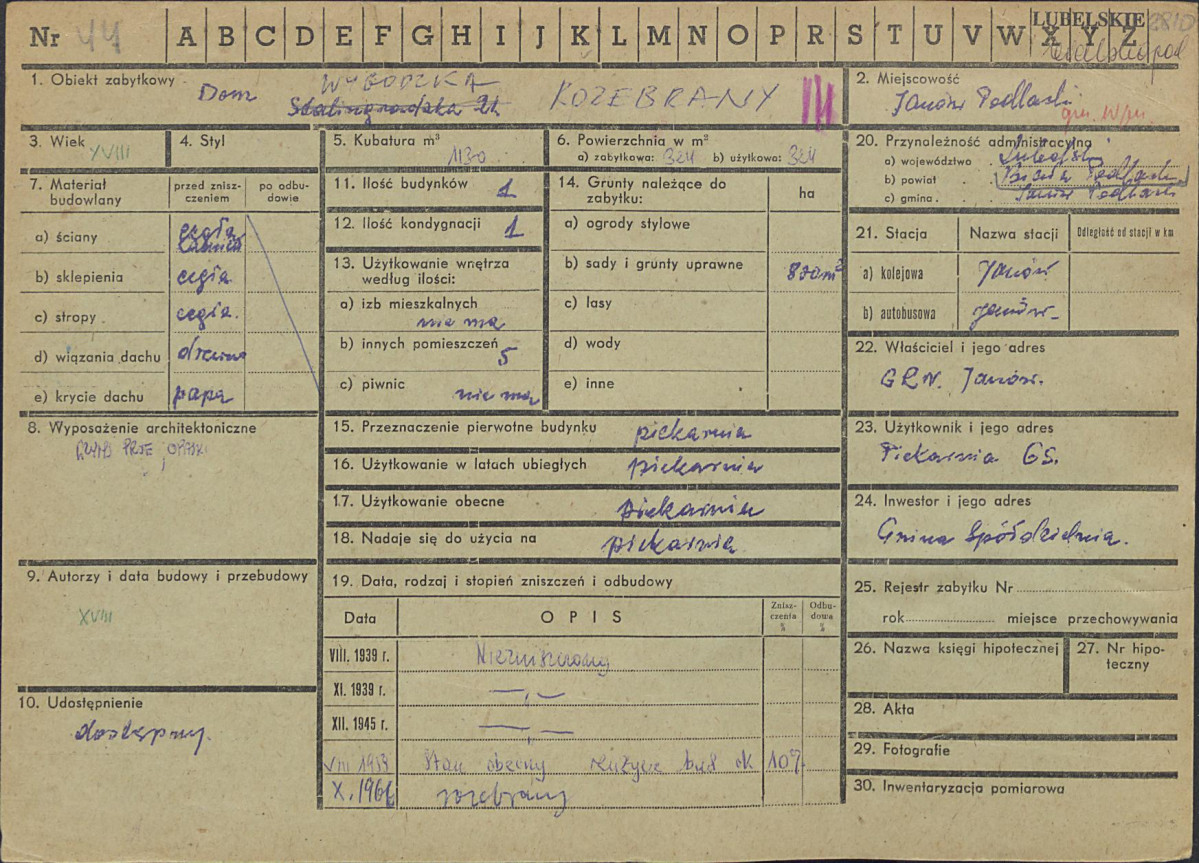 Nr 44 A B C D E F G H I J K L M N O P R S T U V W X Y Z
LUBELSKIE
1. Obiekt zabytkowy Dom
Stalingradzka 21
2. Miejscowość
Janów Podlaski
3. Wiek XVIII
4. Styl
5. Kubatura m³ 1130
6. Powierzchnia w m²
a) zabytkowa: 324 b) użytkowa: 324
7. Materiał budowlany
przed zniszczeniem
po odbudowie
a) ściany cegła
b) sklepienia cegła
c) stropy cegła.
d) wiązania dachu drewno
e) krycie dachu papa
8. Wyposażenie architektoniczne
9. Autorzy i data budowy i przebudowy
XVIII
10. Udostępnienie
dostępny.
11. Ilość budynków 1
12. Ilość kondygnacji 1
13. Użytkowanie wnętrza
według ilości:
a) izb mieszkalnych
nie ma
b) innych pomieszczeń 5
c) piwnic nie ma
14. Grunty należące do
zabytku:
ha
a) ogrody stylowe
b) sady i grunty uprawne
c) lasy
d) wody
e) inne
15. Przeznaczenie pierwotne budynku piekarnia
16. Użytkowanie w latach ubiegłych piekarnia
17. Użytkowanie obecne piekarnia
18. Nadaje się do użycia na piekarnia.
19. Data, rodzaj i stopień zniszczeń i odbudowy
Data OPIS Zniszczenia % Odbudowa %
VIII. 1939 r.
XI. 1939 r. — „ —
XII. 1945 r. — „ —
VIII 1959 Stan obecny zużycie bud ok 10%
X. 196 rozebrany
20. Przynależność administracyjna
a) województwo Lubelskie
b) powiat Biała Podlaska
c) gmina Janów Podlaski
21. Stacja
Nazwa stacji
Odległość od stacji w km
a) kolejowa Janów
b) autobusowa Janów
22. Właściciel i jego adres
GRN. Janów.
23. Użytkownik i jego adres
Piekarnia GS.
24. Inwestor i jego adres
Gminna Spółdzielnia.
25. Rejestr zabytku Nr
rok miejsce przechowywania
26. Nazwa księgi hipotecznej
27. Nr hipoteczny
28. Akta
29. Fotografie
30. Inwentaryzacja pomiarowa